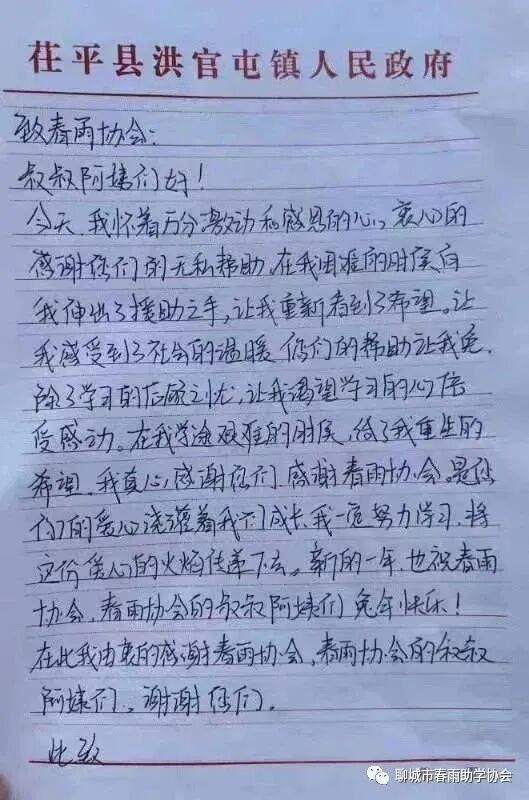 茌平县洪官屯镇人民政府
致春雨协会：
叔叔阿姨们好！
今天，我怀着万分激动和感恩的心，衷心的
感谢你们的无私帮助，在我困难的时候向
我伸出了援助之手，让我重新看到了希望。让
我感受到了社会的温暖 你们的帮助让我免
除了学习的后顾之忧，让我渴望学习的心倍
受感动。在我学途艰难的时候，给了我重生的
希望，我真心感谢你们 感谢春雨协会。是你
们的爱心浇灌着我们成长，我一定努力学习，将
这份爱心的火焰传递下去。新的一年，也祝春雨
协会，春雨协会的叔叔阿姨们兔年快乐！
在此我由衷的感谢春雨协会，春雨协会的叔叔
阿姨们、谢谢你们。
此致
聊城市春雨助学协会